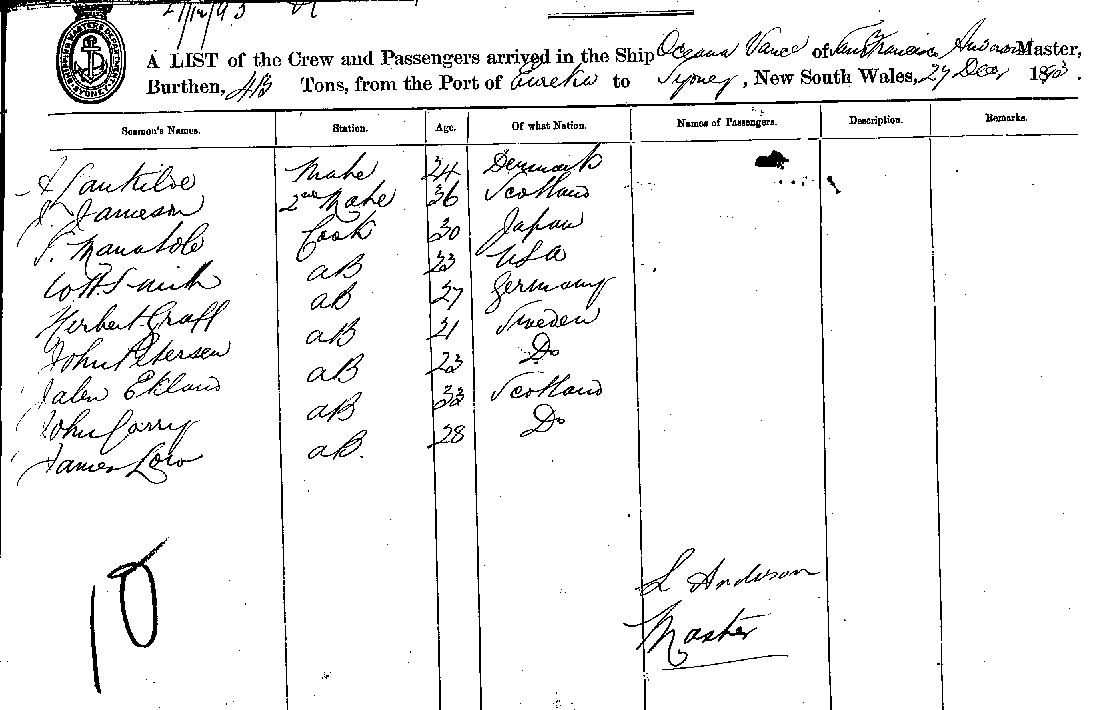 27/12/93
A LIST of the Crew and Passengers arrived in the Ship Oceana Vance of San Francisco Anderson Master,
Burthen, Tons, from the Port of Eureka to Sydney, New South Wales, 27 Decr 1893.
Seamen's Names. Station. Age. Of what Nation. Names of Passengers. Description. Remarks.
Mate 24 Denmark
J. Jameson 2nd Mate 36 Scotland
Cook 30 Japan
Smith aB 23 USA
Herbert Graff aB 27 Germany
John Petersen aB 21 Sweden
Eklund aB 23 Do
John Carry aB 33 Scotland
James Low aB. 28 Do
10
L Anderson
Master